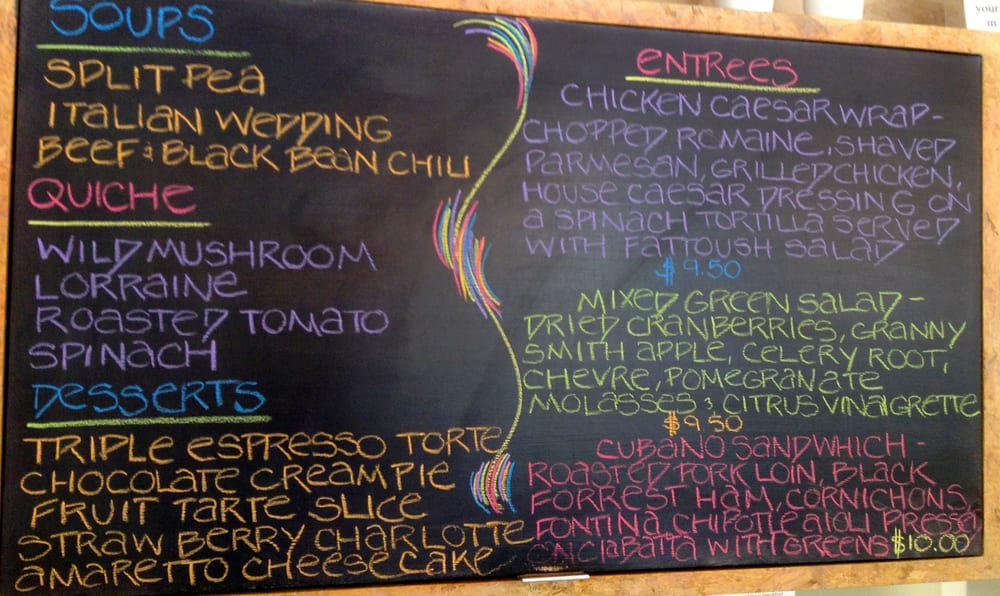 SOUPS
SPLIT PEA
ITALIAN WEDDING
BEEF & BLACK BEAN CHILI
QUICHE
WILD MUSHROOM
LORRAINE
ROASTED TOMATO
SPINACH
DESSERTS
TRIPLE ESPRESSO TORTE
CHOCOLATE CREAM PIE
FRUIT TARTE SLICE
STRAWBERRY CHARLOTTE
AMARETTO CHEESECAKE
ENTREES
CHICKEN CAESAR WRAP-
CHOPPED ROMAINE, SHAVED
PARMESAN, GRILLED CHICKEN,
HOUSE CAESAR DRESSING ON
A SPINACH TORTILLA SERVED
WITH FATTOUSH SALAD
$9.50
MIXED GREEN SALAD-
DRIED CRANBERRIES, GRANNY
SMITH APPLE, CELERY ROOT,
CHEVRE, POMEGRANATE
MOLASSES & CITRUS VINAIGRETTE
$9.50
CUBANO SANDWHICH-
ROASTED PORK LOIN, BLACK
FORREST HAM, CORNICHONS,
FONTINA, CHIPOTLE AIOLI PRESSED
ON CIABATTA WITH GREENS $10.00
your
in